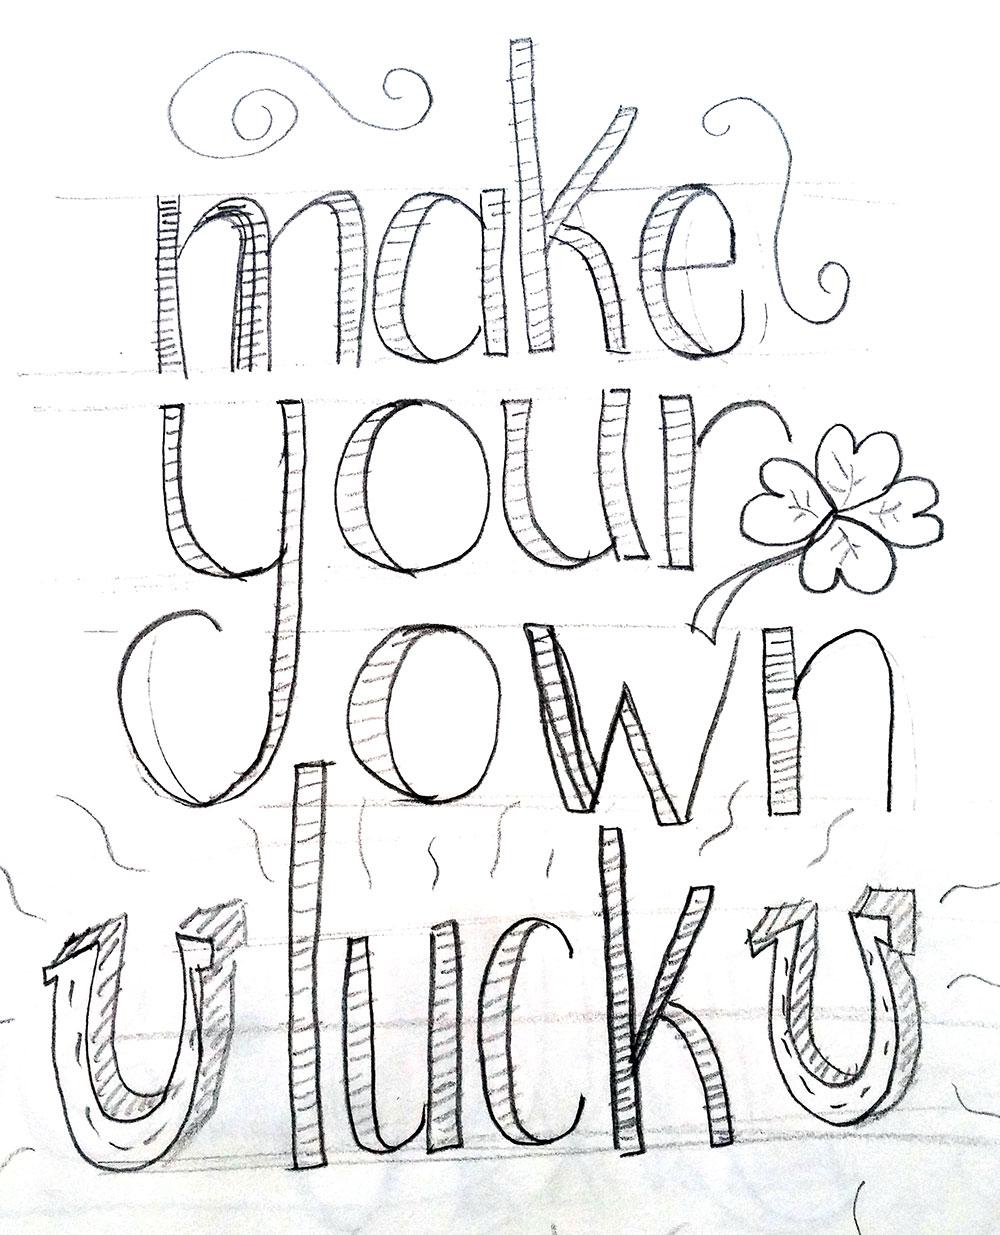 make
your
own
luck